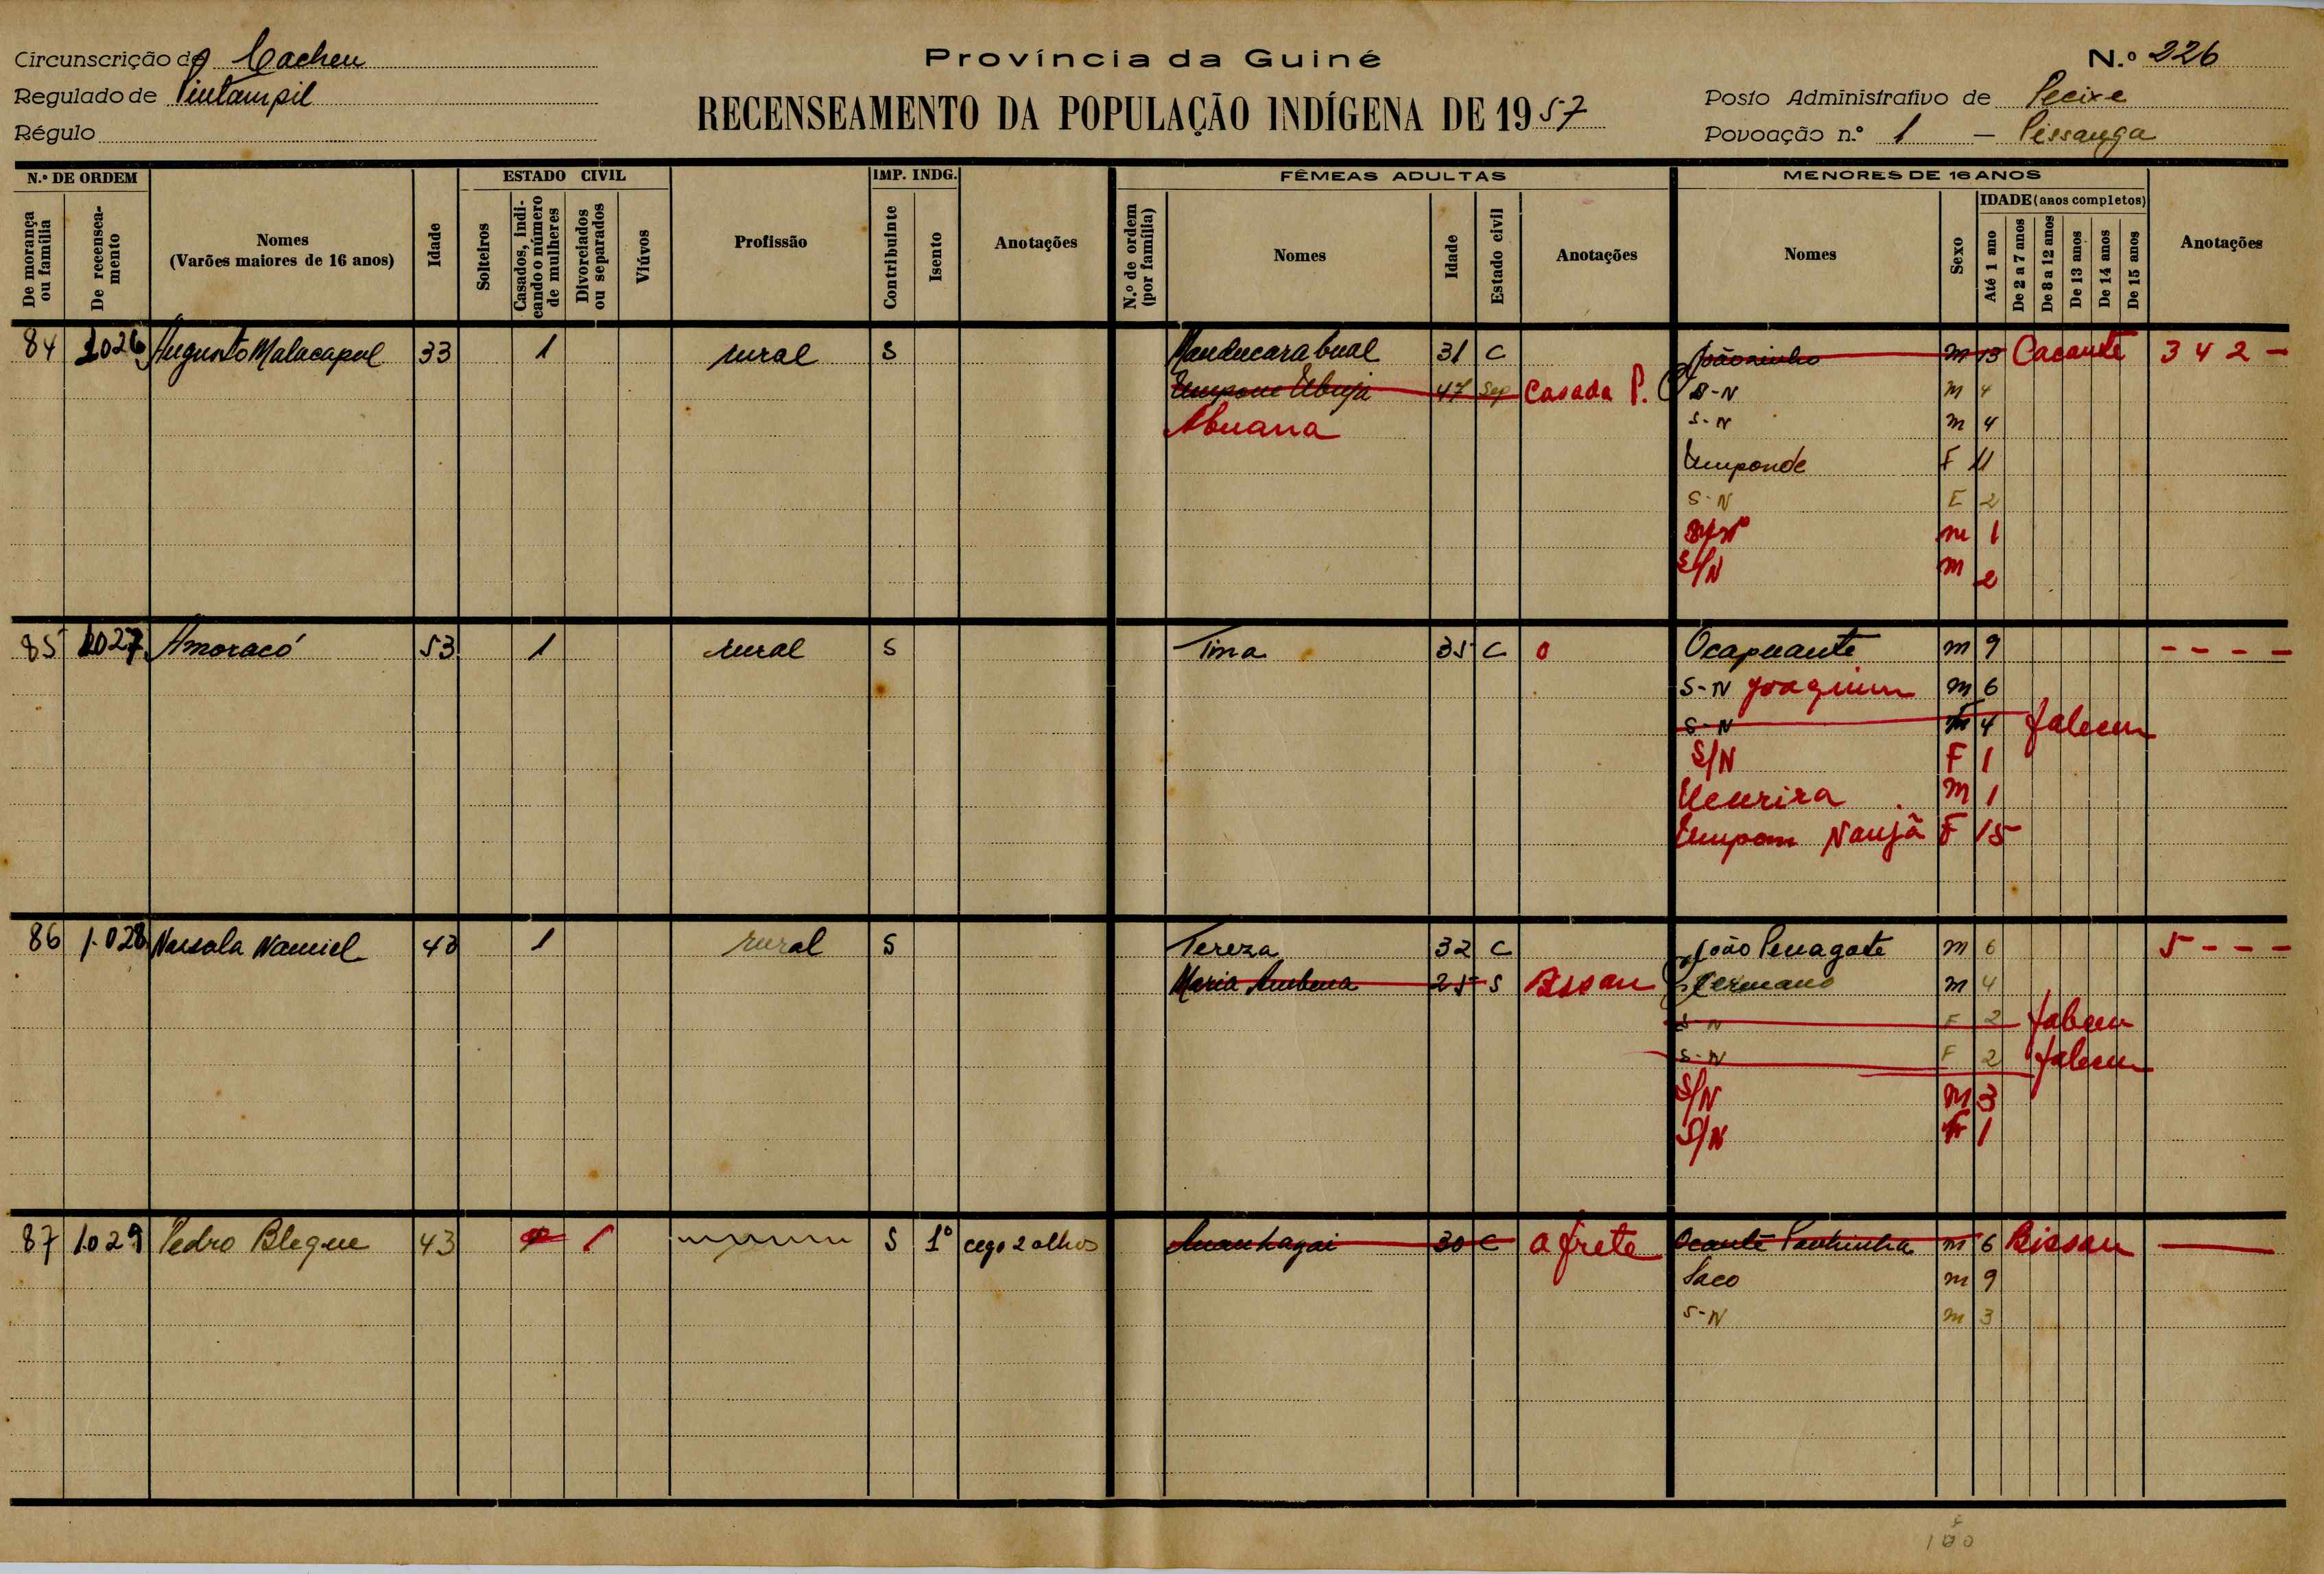 Circunscrição de Cacheu
Província da Guiné
N.º 226
Regulado de Pintampil
RECENSEAMENTO DA POPULAÇÃO INDÍGENA DE 1957
Posto Administrativo de Pecixe
Régulo
Povoação n.º 1 — Pissanga
N.º DE ORDEM
De morança ou família
De recenseamento
Nomes
(Varões maiores de 16 anos)
Idade
ESTADO CIVIL
Solteiros
Casados, indicando o número de mulheres
Divorciados ou separados
Viúvos
Profissão
IMP. INDG.
Contribuinte
Isento
Anotações
FÊMEAS ADULTAS
N.º de ordem (por família)
Nomes
Idade
Estado civil
Anotações
MENORES DE 16 ANOS
Nomes
Sexo
IDADE (anos completos)
Até 1 ano
De 2 a 7 anos
De 8 a 12 anos
De 13 anos
De 14 anos
De 15 anos
Anotações
84 1026 Augusto Malacapul 33 1 rural S Manducarabual 31 C Joãosinho m 13 Cacante 3 4 2 -
47 Sep Casada P. S-N m 4
Abuana S-N m 4
Umponde F 11
S-N F 2
S/N m 1
S/N m 2
85 1027 Amoracó 53 1 rural S Tina 35 C 0 Ocapuante m 9 - - - -
S-N Joaquim m 6
S-N 4 faleceu
S/N F 1
m 1
Umpom Naujã F 15
86 1.028 Nassola Namiel 43 1 rural S Tereza 32 C João Penagate m 6 5 - - -
Maria Ambena 25 S Bissau Germano m 4
S-N F 2 faleceu
S-N F 2 faleceu
S/N m 3
S/N F 1
87 1.029 Pedro Blegue 43 1 S 1º cego 2 olhos 30 C a frete Ocante m 6 Bissau
Saco m 9
S-N m 3